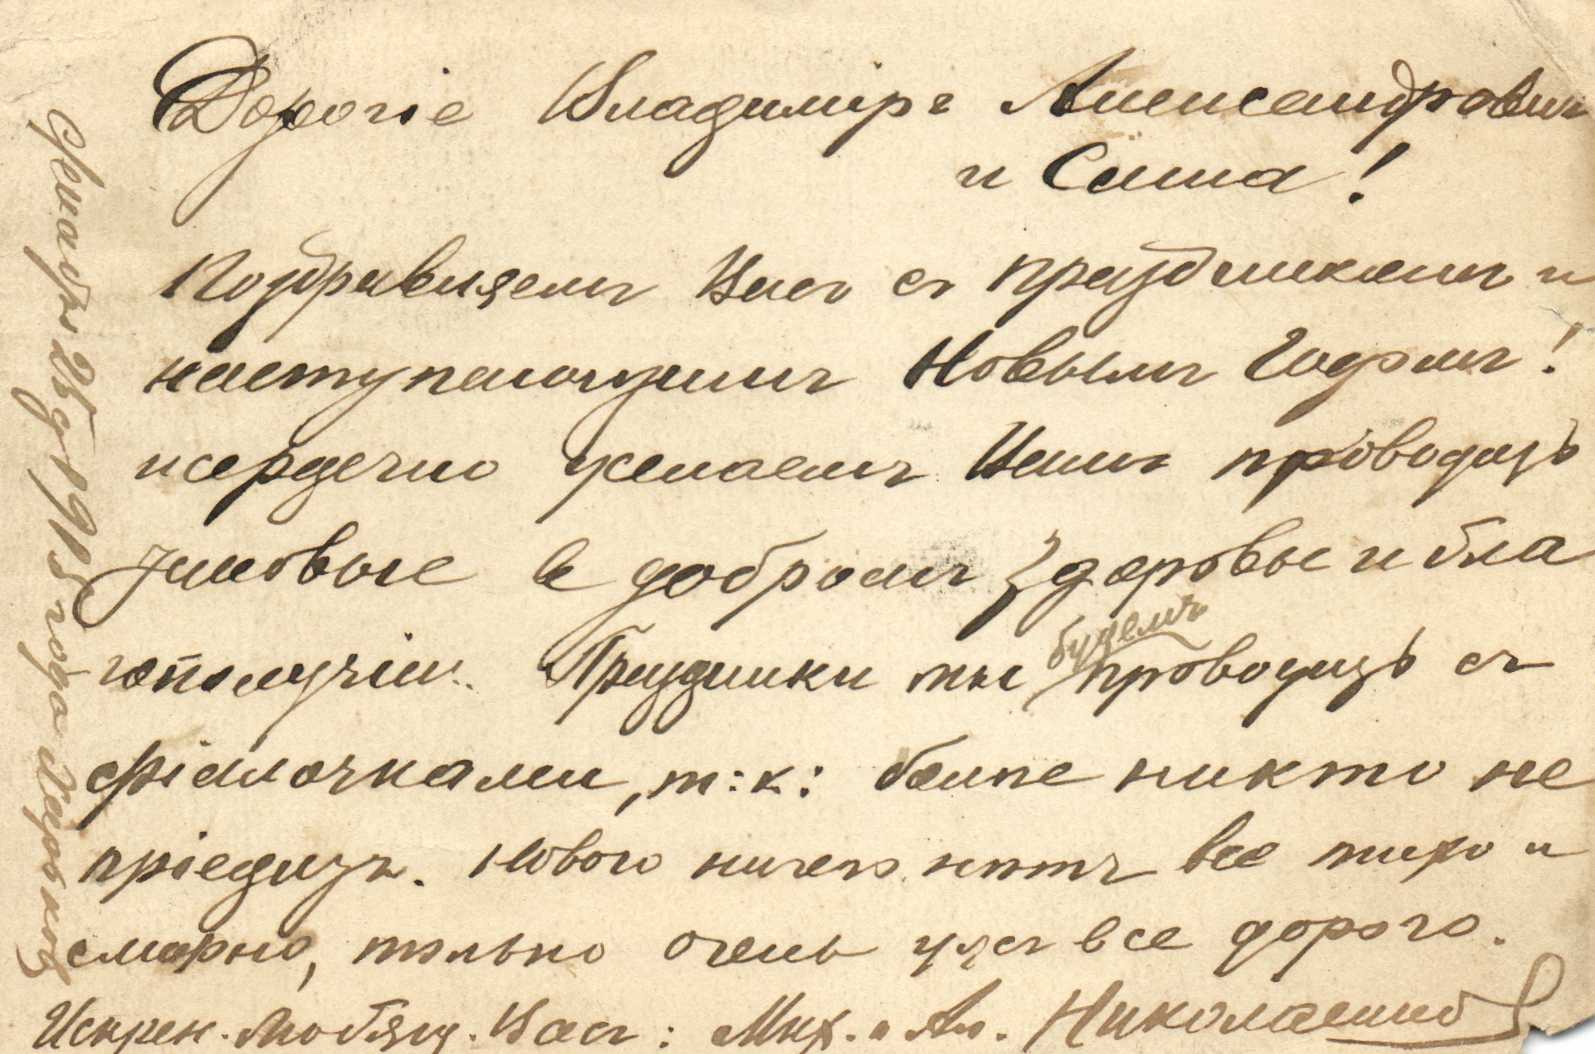 Дорогіе Владиміръ Александровичъ
и Саша!
Поздравляемъ Васъ съ праздникамъ и
наступающимъ Новымъ Годомъ!
и сердечно желаемъ Вамъ проводить
въ добромъ здоровье и бла
гополучіи. Праздники мы будемъ проводить съ
т:к: болѣе никто не
пріедитъ. Нового ничего нѣтъ все тихо и
смирно, только очень у насъ все дорого.
Искрен. Любящ. Васъ: Мих. и Ал.
25 д 1915 года